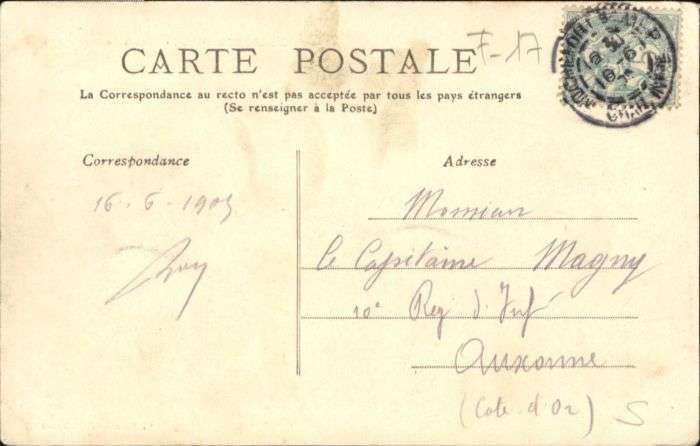 CARTE POSTALE
F-17
La Correspondance au recto n'est pas acceptée par tous les pays étrangers
(Se renseigner à la Poste)
Correspondance
Adresse
16-6-1905
Monsieur
le Capitaine Magny
10e Reg d'Inf
Auxonne
(Cote d'Or)
S